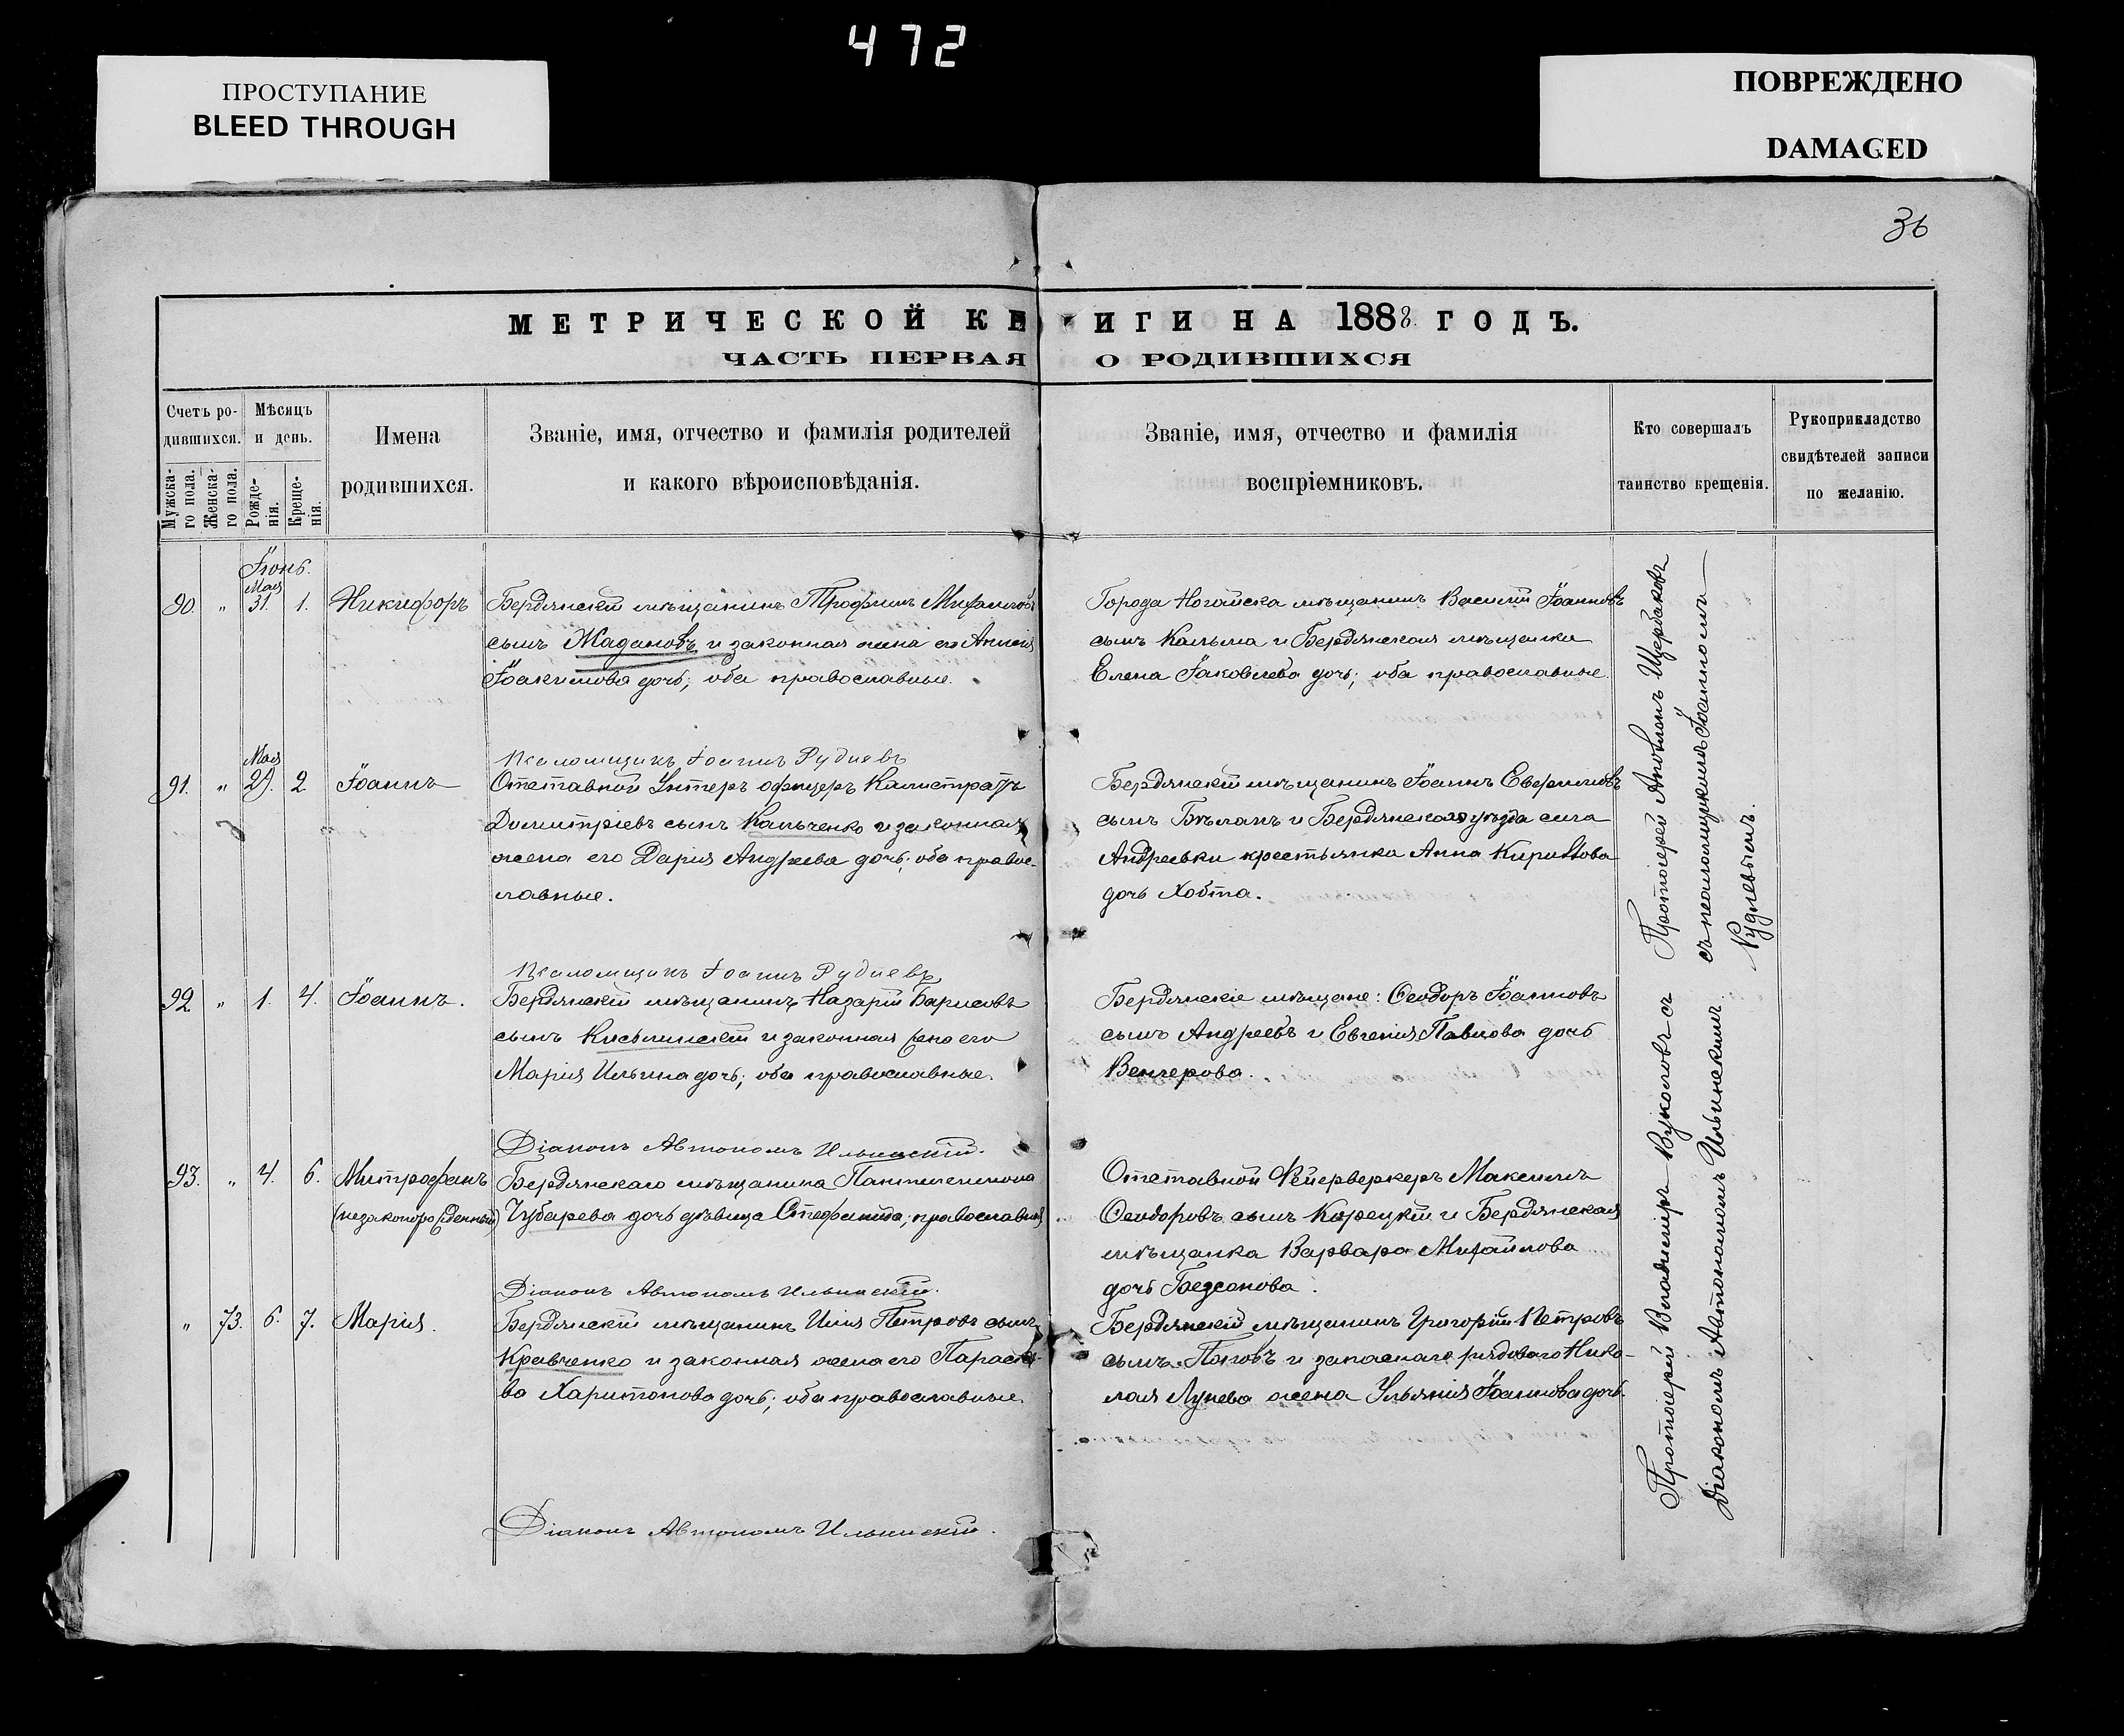 472
ПРОСТУПАНИЕ
BLEED THROUGH
ПОВРЕЖДЕНО
DAMAGED
36
МЕТРИЧЕСКОЙ КНИГИ НА 1888 ГОДЪ.
ЧАСТЬ ПЕРВАЯ О РОДИВШИХСЯ
Счетъ ро-
дившихся.
Мужска-
го пола.
Женска-
го пола.
Мѣсяцъ
и день.
Рожде-
нія.
Креще-
нія.
Имена
родившихся.
Званіе, имя, отчество и фамилія родителей
и какого вѣроисповѣданія.
Званіе, имя, отчество и фамилія
воспріемниковъ.
Кто совершалъ
таинство крещенія.
Рукоприкладство
свидѣтелей записи
по желанію.
Іюнь.
Мая
90. " 31. 1. Никифоръ
Бердянскій мѣщанинъ Трофимъ
сынъ Жадановъ и законная жена его
Іоакимова дочь; оба православные.
Города Ногайска мѣщанинъ Василій Іоанновъ
сынъ Кальма и Бердянская мѣщанка
Елена Іаковлева дочь; оба православные.
Псаломщикъ Іоаннъ Рудневъ
Мая
91. " 29. 2. Іоаннъ
Отставной Унтеръ офицеръ Калистратъ
Димитріевъ сынъ Кальченко и законная
жена его Дарія Андреева дочь; оба правос-
лавные.
Бердянскій мѣщанинъ Іоаннъ Евфимовъ
сынъ Бѣланъ и Бердянскаго уѣзда села
Андреевки крестьянка Анна Кириллова
дочь Хобта.
Псаломщикъ Іоаннъ Рудневъ
92. " 1. 4. Іоаннъ.
Бердянскій мѣщанинъ Назарій Борисовъ
сынъ и законная жена его
Марія Ильина дочь; оба православные.
Бердянскіе мѣщане: Ѳеодоръ Іоанновъ
сынъ Андреевъ и Евгенія Павлова дочь
Венгерова.
Діаконъ Автономъ Ильинскій.
93. " 4. 6. Митрофанъ
(незаконорожденный)
Бердянскаго мѣщанина Пантелеимона
Чубарева дочь дѣвица Стефанида; православная
Отставной Фейерверкеръ Максимъ
Ѳеодоровъ сынъ Корецкій и Бердянская
мѣщанка Варвара Михайлова
дочь Безсонова.
Діаконъ Автономъ Ильинскій.
" 73. 6. 7. Марія.
Бердянскій мѣщанинъ Илія Петровъ сынъ
Кравченко и законная жена его Параске-
ва Харитонова дочь; оба православные.
Бердянскій мѣщанинъ Григорій Петровъ
сынъ Поповъ и запаснаго рядоваго Нико-
лая Лунева жена Ульянія Іоаннова дочь.
Діаконъ Автономъ Ильинскій.
Протоіерей Щербаковъ
съ псаломщикомъ Іоанномъ
Рудневымъ.
Протоіерей Владиміръ Вуколовъ съ
діакономъ Автономомъ Ильинскимъ